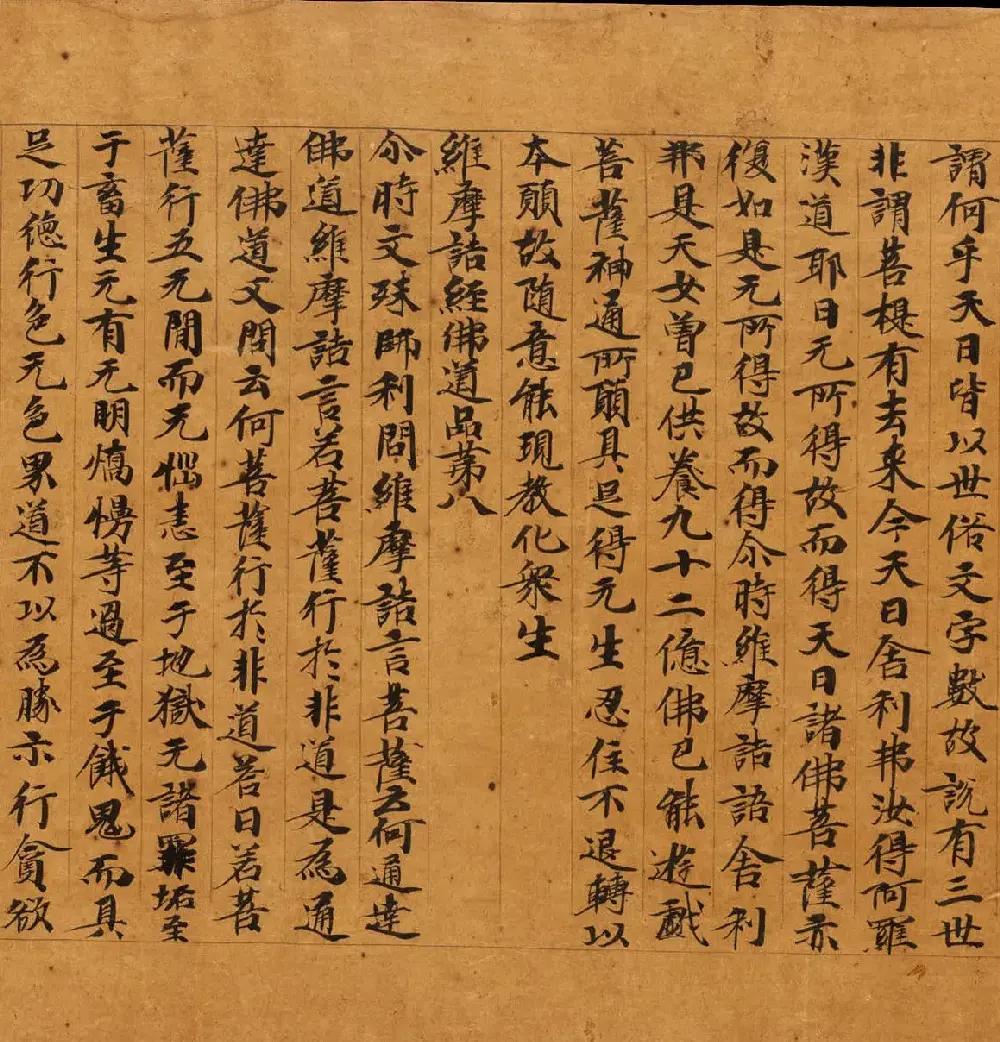 謂何乎天曰皆以世俗文字數故說有三世
非謂菩提有去来今天曰舍利弗汝得阿羅
漢道耶曰无所得故而得天曰諸佛菩薩亦
復如是无所得故而得尒時維摩詰語舍利
弗是天女曾已供養九十二億佛已能遊戲
菩薩神通所願具足得无生忍住不退轉以
本願故随意能現教化衆生
維摩詰經佛道品第八
尒時文殊師利問維摩詰言菩薩云何通達
佛道維摩詰言若菩薩行於非道是為通
達佛道又問云何菩薩行於非道荅曰若菩
薩行五无間而无惱恚至于地獄无諸罪垢至
于畜生无有无明憍慢等過至于餓鬼而具
足功德行色无色界道不以為勝示行貪欲